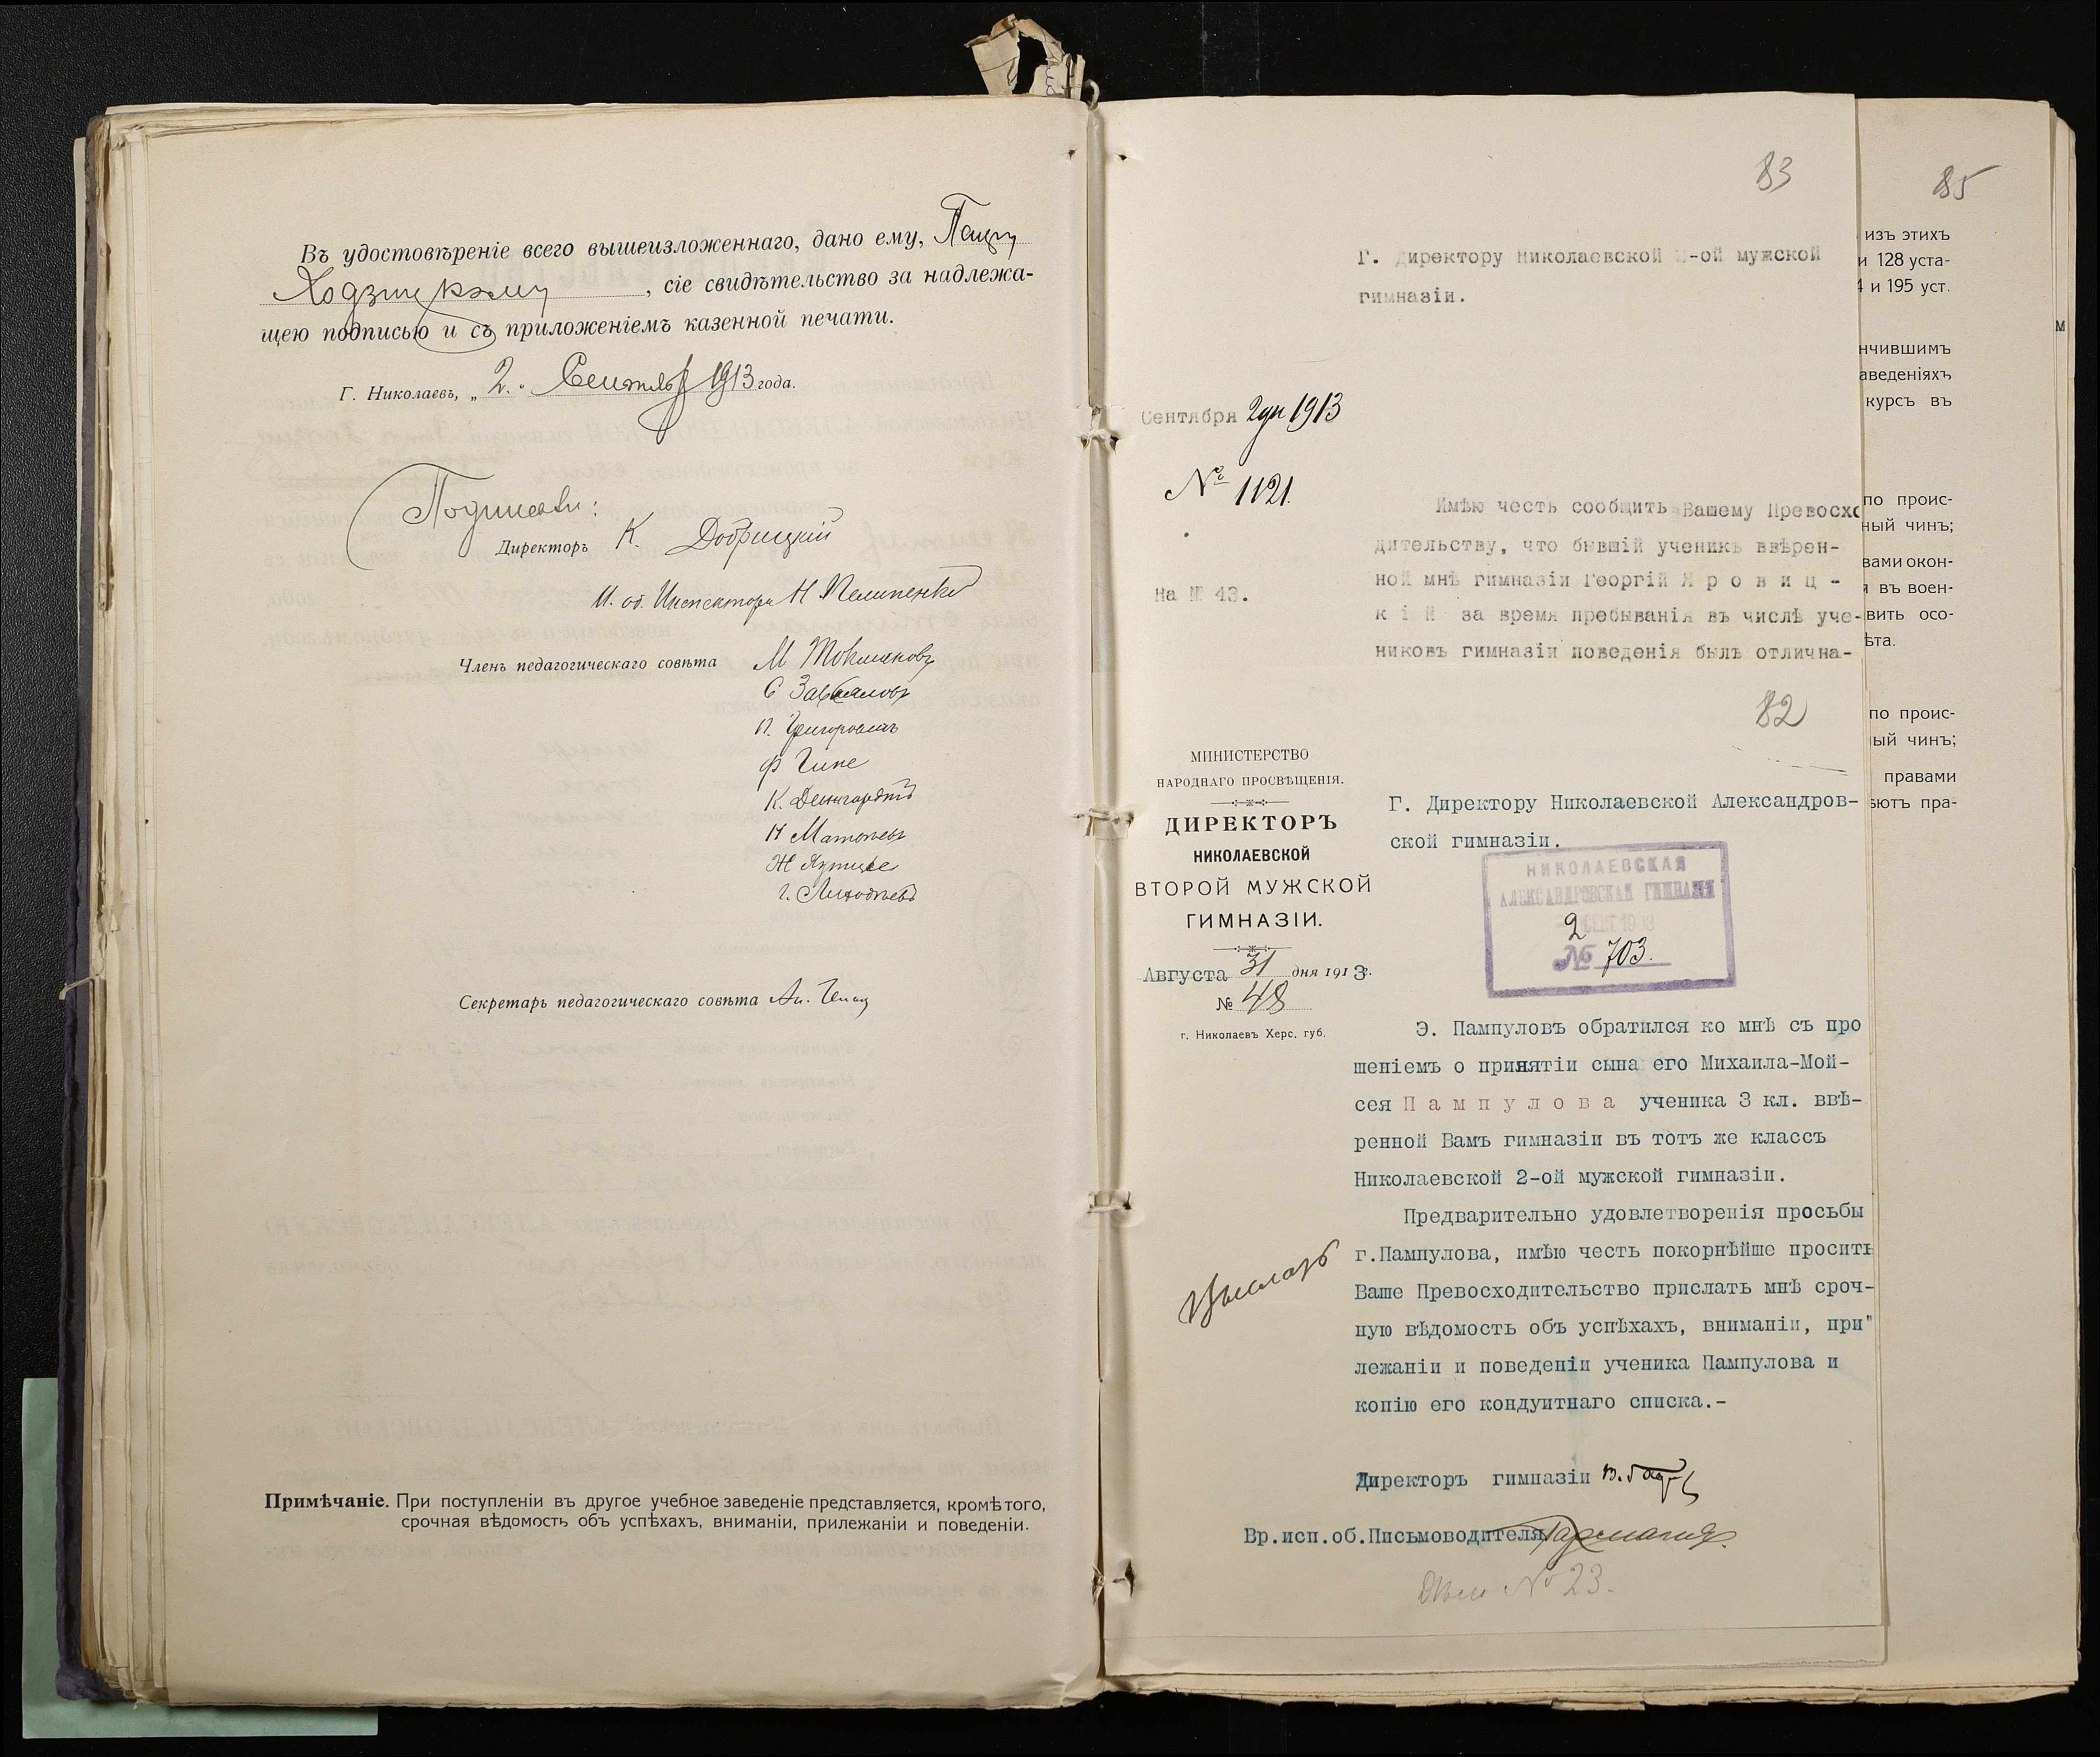 Въ удостовѣреніе всего вышеизложеннаго, дано ему,
Ходзицкому, сіе свидѣтельство за надлежа-
щею подписью и съ приложеніемъ казенной печати.
Г. Николаевъ, „2.“ Сентября 1913 года.
Подписали:
Директоръ К. Добрицкій
И. об. Инспектора Н Пелипенко
Членъ педагогическаго совѣта
С Завьяловъ
П. Григоровичъ
Ф Гипе
К. Дейнгардтъ
Н Матвѣевъ
Секретарь педагогическаго совѣта
Примѣчаніе. При поступленіи въ другое учебное заведеніе представляется, кромѣ того,
срочная вѣдомость объ успѣхахъ, вниманіи, прилежаніи и поведеніи.
83
Г. Директору Николаевской 2-ой мужской
гимназіи.
Сентября 2 дн 1913
№ 1121.
На № 43.
Имѣю честь сообщить Вашему Превосхо
дительству, что бывшій ученикъ ввѣрен-
ной мнѣ гимназіи Георгій Яровиц-
кій за время пребыванія въ числѣ уче-
никовъ гимназіи поведенія былъ отлична-
82
МИНИСТЕРСТВО
НАРОДНАГО ПРОСВѢЩЕНІЯ.
ДИРЕКТОРЪ
НИКОЛАЕВСКОЙ
ВТОРОЙ МУЖСКОЙ
ГИМНАЗІИ.
Августа 31 дня 1913 г.
№ 48
г. Николаевъ Херс. губ.
Г. Директору Николаевской Александров-
ской гимназіи.
НИКОЛАЕВСКАЯ
АЛЕКСАНДРОВСКАЯ ГИМНАЗІЯ
2 СЕНТ 1913
№ 703.
Э. Пампуловъ обратился ко мнѣ съ про
шеніемъ о принятіи сына его Михаила-Мой-
сея Пампулова ученика 3 кл. ввѣ-
ренной Вамъ гимназіи въ тотъ же классъ
Николаевской 2-ой мужской гимназіи.
Предварительно удовлетворенія просьбы
г.Пампулова, имѣю честь покорнѣйше просить
Ваше Превосходительство прислать мнѣ сроч-
ную вѣдомость объ успѣхахъ, вниманіи, при"
лежаніи и поведеніи ученика Пампулова и
копію его кондуитнаго списка.-
Выслать
Директоръ гимназіи
Вр.исп.об.Письмоводителя
Дѣло № 23.
85
изъ этихъ
и 128 уста-
4 и 195 уст.
нчившимъ
аведеніяхъ
курсъ въ
по проис-
ный чинъ;
вами окон-
я въ воен-
вить осо-
ѣта.
по проис-
ный чинъ;
правами
ьютъ пра-
м